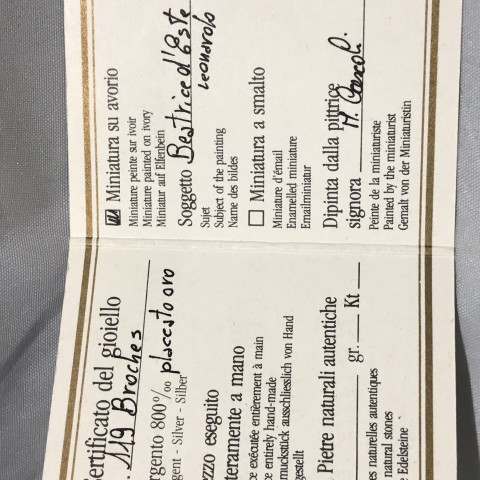 Certificato del gioiello
. 119 Broches
rgento 800‰ placcato oro
gent - Silver - Silber
zzo eseguito
teramente a mano
ce exécutée entièrement à main
ce entirely hand-made
muckstück ausschliesslich von Hand
gestellt
Pietre naturali autentiche
gr. Kt
es naturelles autentiques
natural stones
e Edelsteine
Miniatura su avorio
Miniature peinte sur ivoir
Miniature painted on ivory
Miniatur auf Elfenbein
Soggetto Beatrice d'Este
Leonardo
Sujet
Subject of the painting
Name des bildes
Miniatura a smalto
Miniature d'émail
Enamelled miniature
Emailminiatur
Dipinta dalla pittrice
signora M.
Peinte de la miniaturiste
Painted by the miniaturist
Gemalt von der Miniaturistin